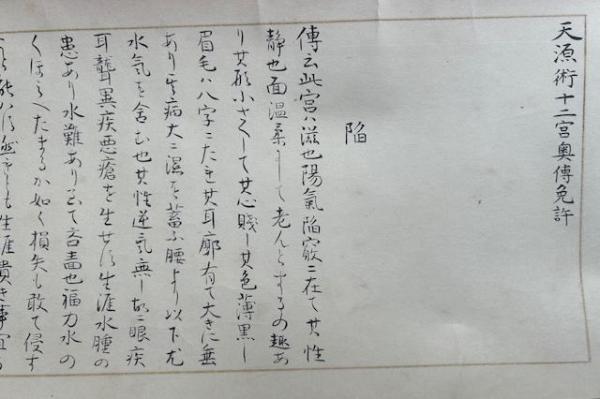 天源術十二宮奥傳免許
陷
傳云此宮ハ滋也陽氣陷竅ニ在て其性
静也面温柔にして老んとするの趣あ
り其形小さくして其心賤し其色薄黒し
眉毛ハ八字こたき其耳廓有て大きに垂
あり其病大ニ濕を蓄ふ腰より以下尤
水気を含む也其性逆気無し故ニ眼疾
耳聾異疾悪瘡を生せす生涯水腫の
患あり水難あり吝嗇也福力水の
くほミへたまるか如く損失も敢て侵す
も生涯貴き事